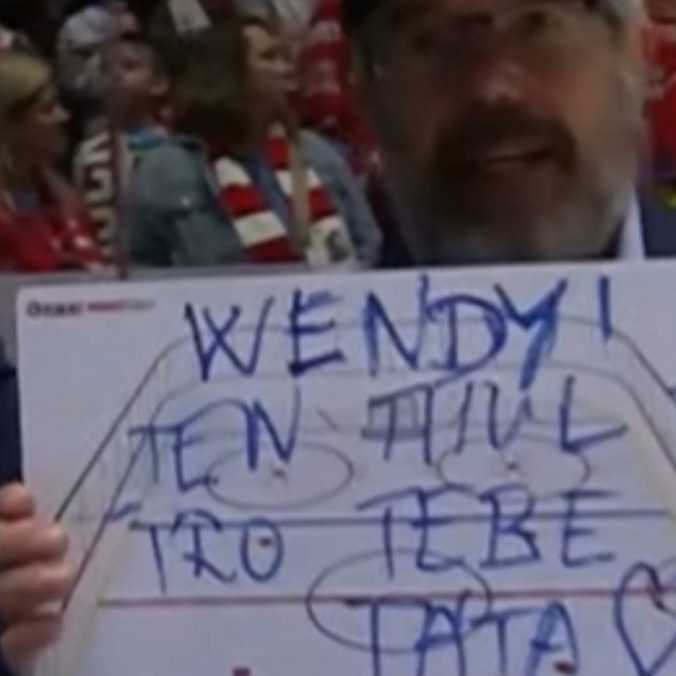 WENDY!
TEN TITUL
PRO TEBE
TATA